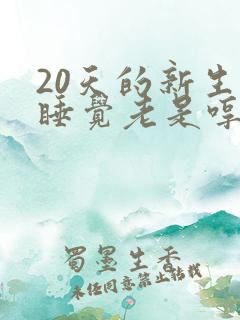 20天的新生
睡覺老是哼
蜀墨生香
未经同意禁止搭载